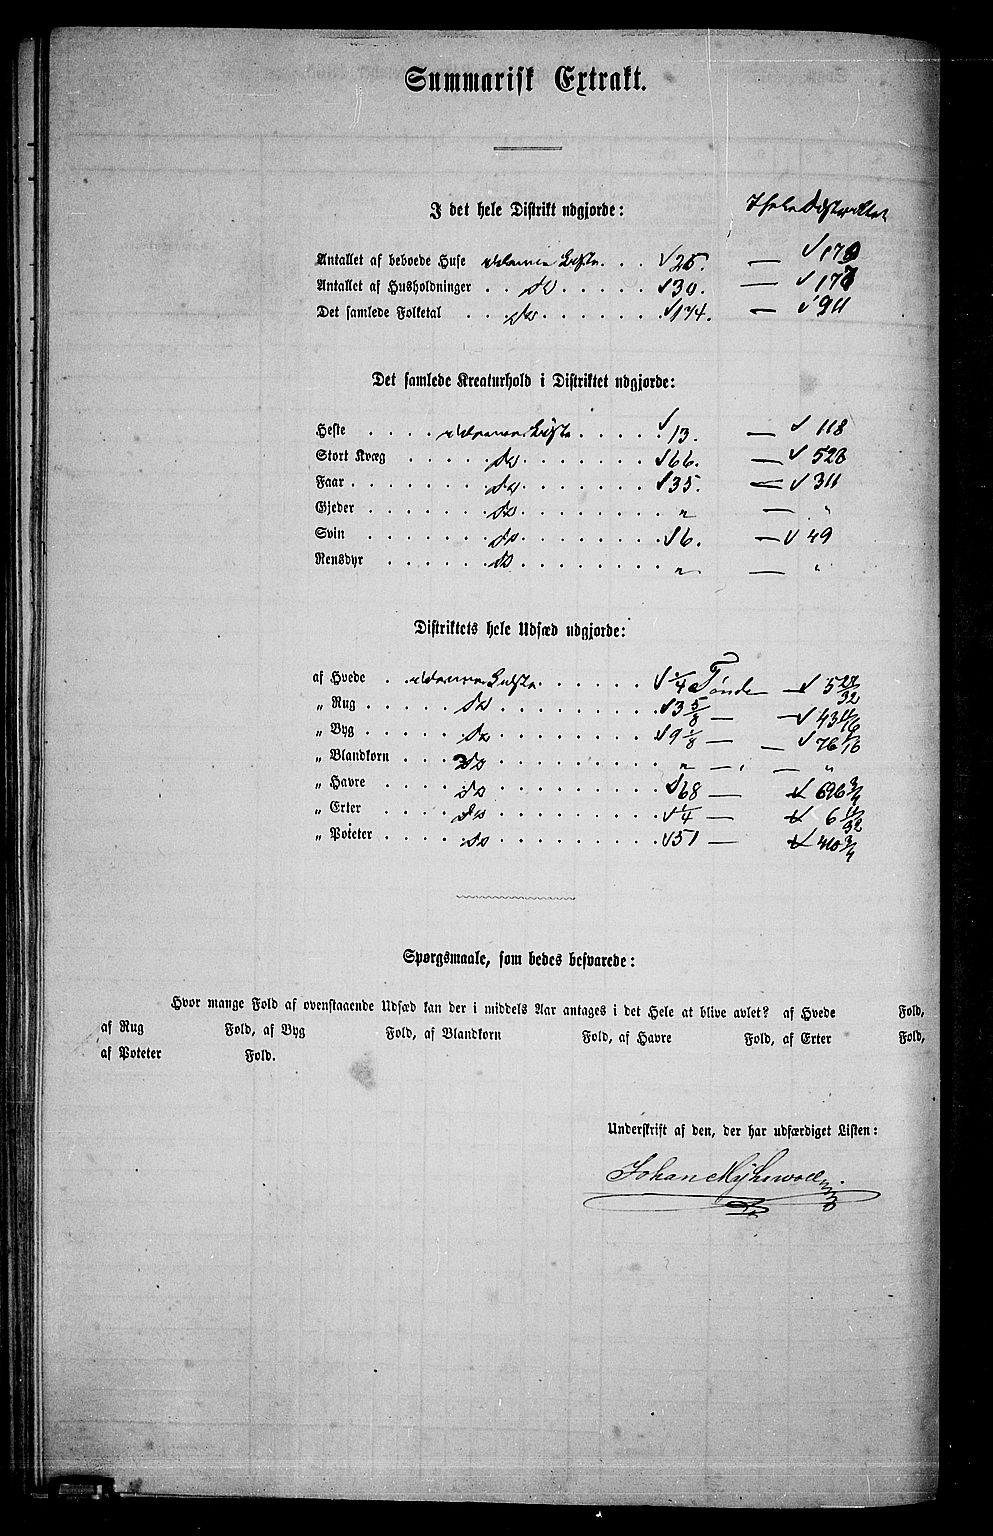 Summarisk Extrakt.
I det hele Distrikt udgjorde: I hele Distriktet
Antallet af beboede Huse i denne Liste . . . 25. —
Antallet af Husholdninger . . do . . . . . . 30. —
Det samlede Folketal . . . do . . . . . . 134. — 911
Det samlede Kreaturhold i Distriktet udgjorde:
Heste . . . . i denne Liste . . . . . 13. — 118
Stort Kvæg . . . . . do . . . . . . . 66. — 523
Faar . . . . . . . do . . . . . . . 35. — 311
Gjeder . . . . . . do . . . . . . . " — "
Svin . . . . . . . do . . . . . . . 6. — 49
Rensdyr . . . . . do . . . . . . . " — "
Distriktets hele Udsæd udgjorde:
af Hvede . . i denne Liste . . . . . . 1/4 Tønde — 5 27/32
„ Rug . . . . . do . . . . . . . . . 3 5/8 — — 43
„ Byg . . . . . do . . . . . . . . . 9 1/8 — — 76 1/16
„ Blandkorn . . . do . . . . . . . . . " — — "
„ Havre . . . . do . . . . . . . . . 68 — 696 3/4
„ Erter . . . . do . . . . . . . . . 1/4 — 6 11/32
„ Poteter . . . . do . . . . . . . . . 51 — 410 3/4
Spørgsmaale, som bedes besvarede:
Hvor mange Fold af ovenstaaende Udsæd kan der i middels Aar antages i det Hele at blive avlet? af Hvede Fold,
af Rug Fold, af Byg Fold, af Blandkorn Fold, af Havre Fold, af Erter Fold,
af Poteter Fold.
Underskrift af den, der har udfærdiget Listen:
Johan